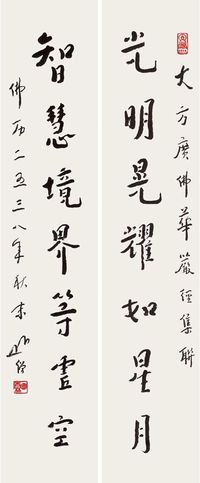 大方廣佛華嚴經集聯
光明晃耀如星月
智慧境界等虛空
佛历二五三八年秋末